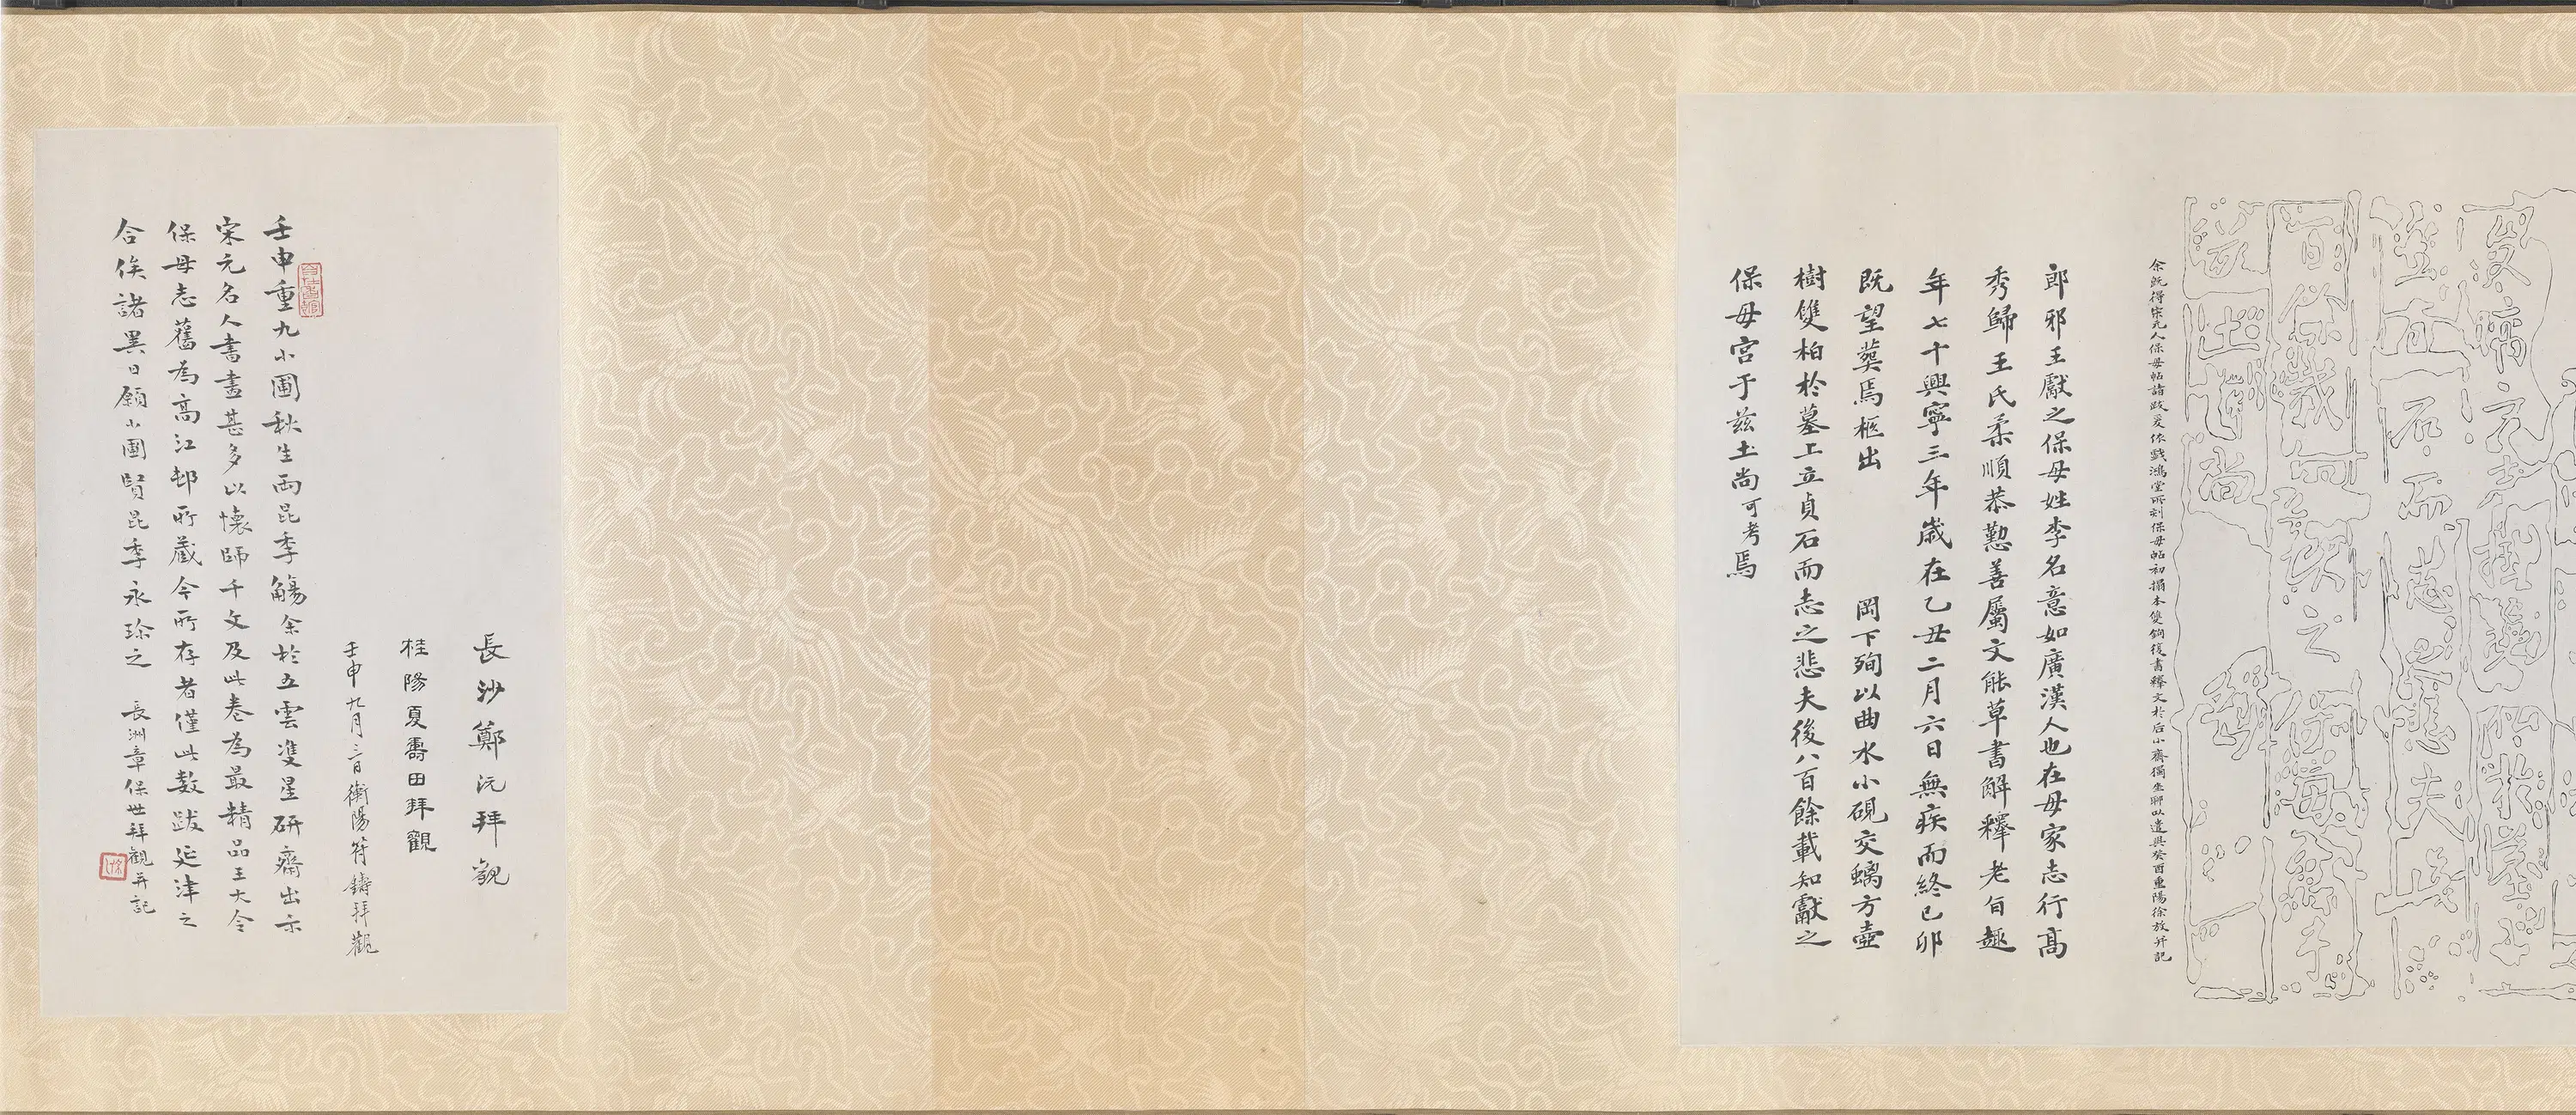 遂
土
尚
百餘載知獻之保母宮于
墓上立貞石而志之悲夫
余既得宋元人保母帖諸跋爰依戲鴻堂所刻保母帖初搨本雙鉤後書釋文於后小齋獨坐聊以遣興癸酉重陽徐放并記
郎邪王獻之保母姓李名意如廣漢人也在母家志行高
秀歸王氏柔順恭懃善屬文能草書解釋老旨趣
年七十興寧三年歲在乙丑二月六日無疾而終已卯
既望葬焉柩出 岡下殉以曲水小硯交螭方壺
樹雙柏於墓上立貞石而志之悲夫後八百餘載知獻之
保母宮于茲土尚可考焉
長沙鄭沅拜觀
桂陽夏壽田拜觀
壬申九月三日衡陽符鑄拜觀
壬申重九小圃秋生兩昆季觴余於五雲雙星研齋出示
宋元名人書畫甚多以懷師千文及此卷為最精品王大令
保母志舊為高江邨所藏今所存者僅此數跋延津之
合俟諸異日願小圃賢昆季永珍之 長洲章保世拜觀并記